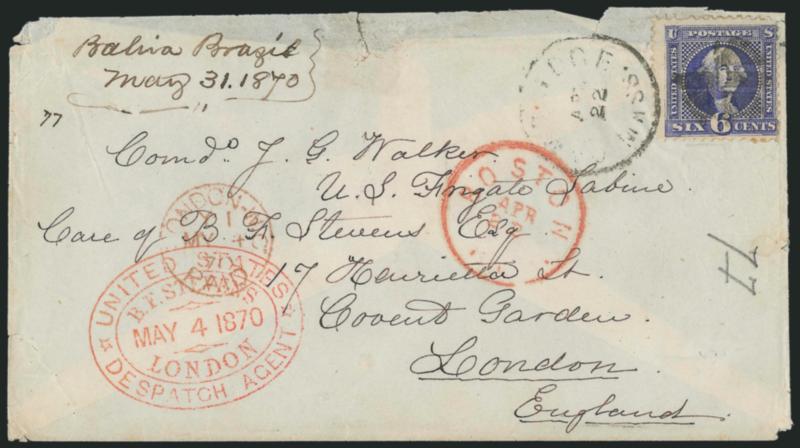 Bahia Brazil
May 31. 1870
"
77
Comdr J. G. Walker
U. S. Frigate Sabine
Care of B F Stevens Esq
17 Henrietta St.
Covent Garden
London
England
U S
POSTAGE
UNITED STATES
UNITED STATES
SIX 6 CENTS
IDGE MASS.
AP
22
BOSTON
APR
LONDON
PAID
UNITED STATES
B.F. STEVENS
MAY 4 1870
LONDON
DESPATCH AGENT
77